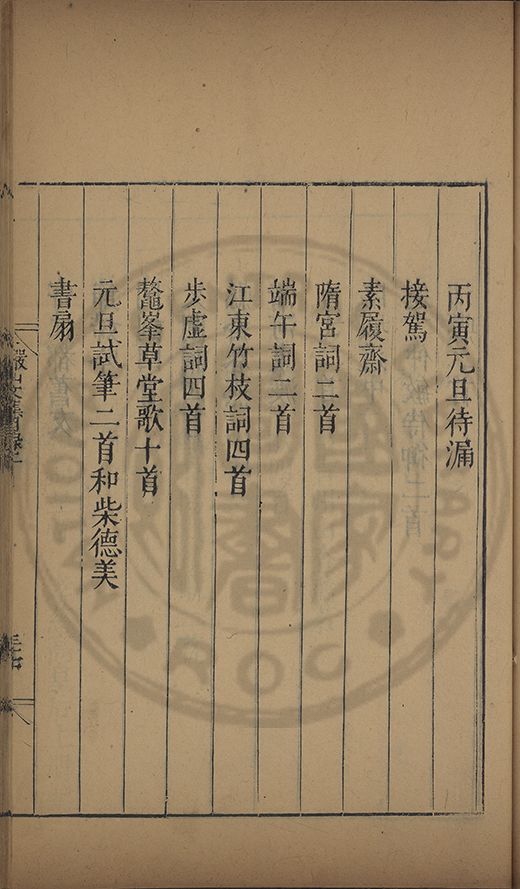 丙寅元旦待漏
接駕
素履齋
隋宮詞二首
端午詞二首
江東竹枝詞四首
步虛詞四首
鼇峯草堂歌十首
元旦試筆二首和柴德美
書扇